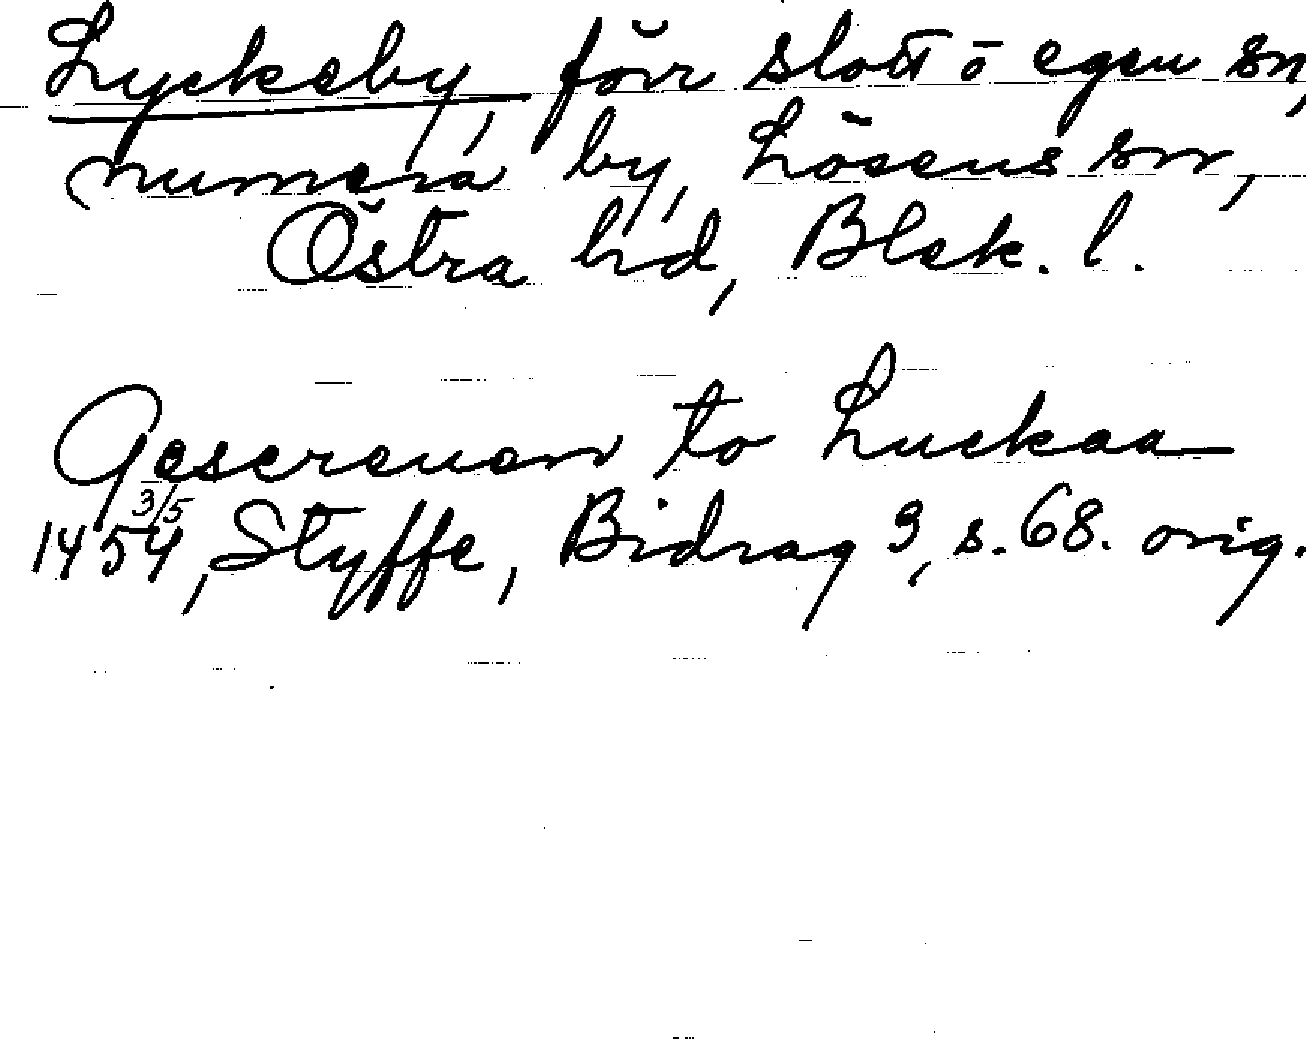 Lyckeby, förr slott o egen sn,
numera by, Lösens sn,
Östra hd, Blek. l.
Gescreuen to Luckaa
1454 3/5, Styffe, Bidrag 3, s. 68. orig.